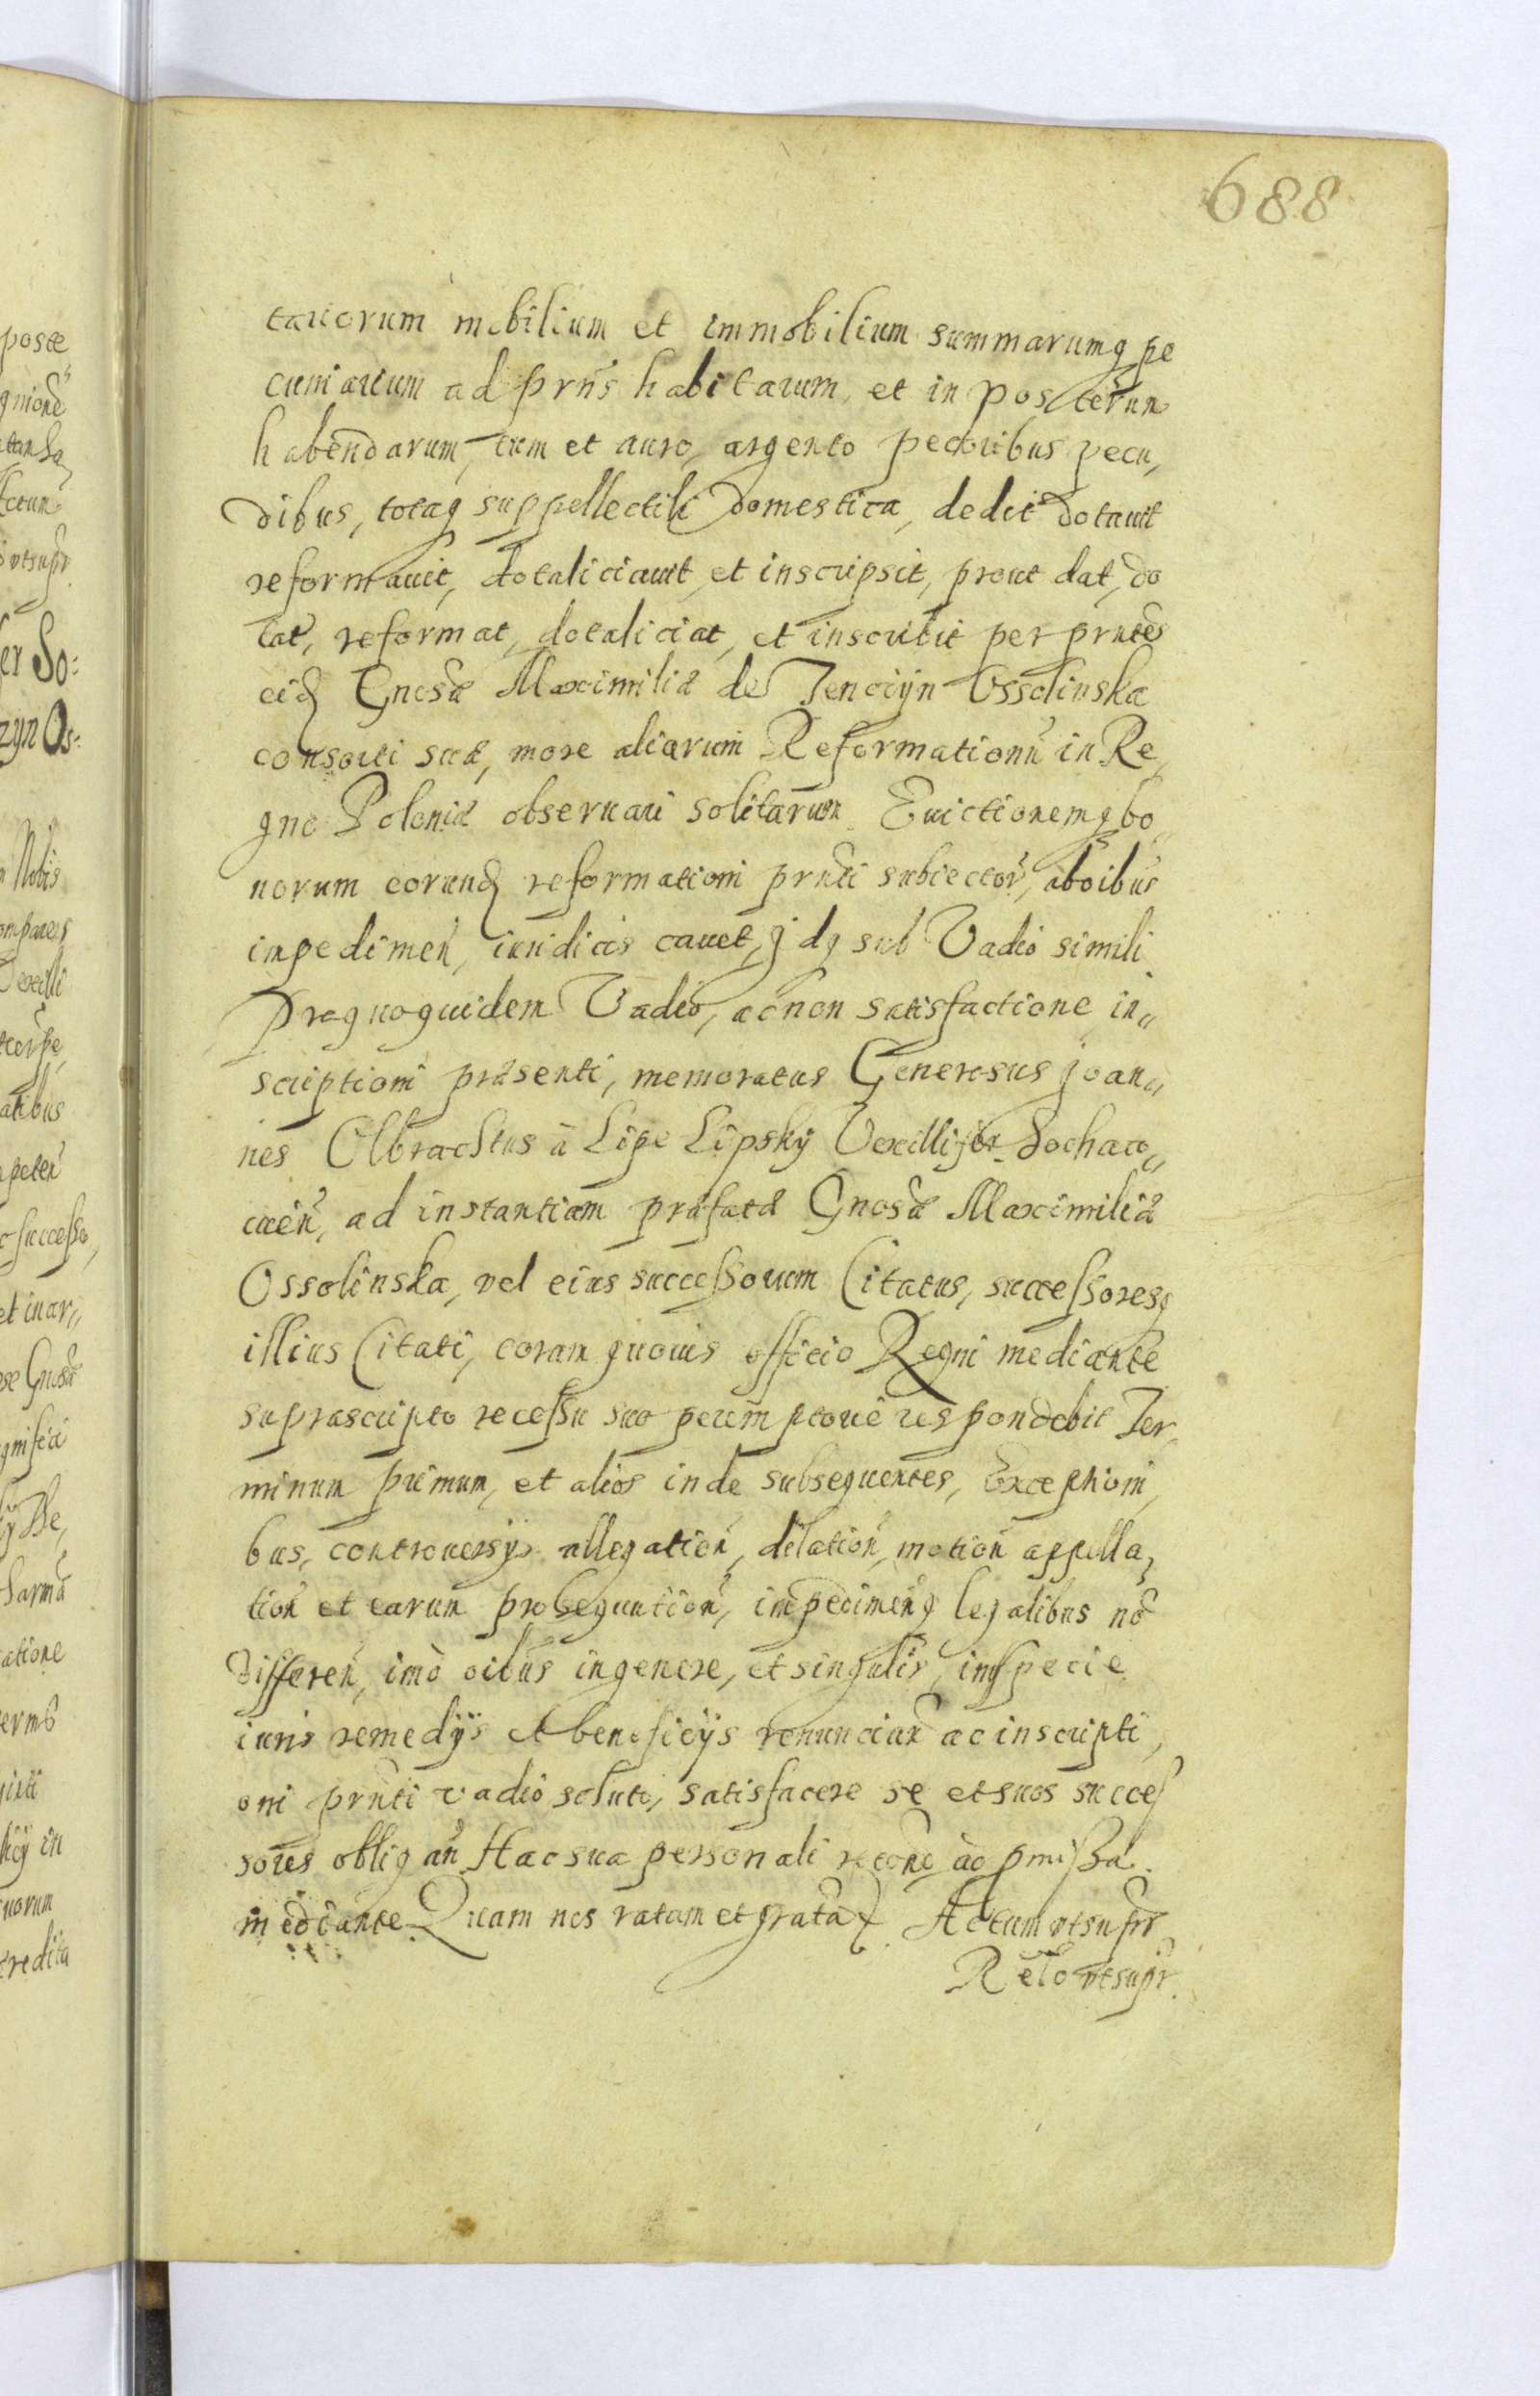 688
tariorum mobilium et immobilium summarumq pe
cuniarium ad prns habitarum, et in posterum
habendarum, tum et auro, argento pecoribus pecu,
dibus, totaq suppellectili domestica, dedit dotauit
reformauit, dotaliciauit, et inscripsit, prout dat, do
tat, reformat, dotaliciat, et inscribit per prntes
eid Gnosæ Maximiliæ de Tenciyn Ossolinska
consorti suæ, more aliarum Reformationu in Re,
gno Poloniæ obseruari solitarum Euictionemq bo,,
norum eorund reformationi prnti subiector, ab oibus
impedimen, iuridicis cauet, idq sub Vadio simili
Pro quo quidem Vadio, ac non satisfactione in,,
scriptioni præsenti, memoratus Generosus Joan,,
nes Olbrachtus à Lipe Lipsky Vexillifer Sochac,,
cien, ad instantiam præfatæ Gnosæ Maximiliæ
Ossolinska, vel eius successorum Citatus, successoresq
illius Citati, coram quouis officio Regni mediante
suprascripto recessu suo peremptorie respondebit Ter,
minum primum, et alios inde subsequentes, Exceptioni,
bus, controuersijs allegation, dilation, motion appella,
tion et earum prosequution, impedimenq legalibus no
differen, imò oibus in genere, et singulis, in specie
iuris remedijs et beneficijs renuncian ac inscripti,
oni prnti vadio soluto, satisfacere se et suos succes
sores obligan Hac sua personali recone ad pmissa
mediante Quam nos ratam et grata Actum vtsupr
Relo vtsupr.
posæ
vtsupr
er So:
zyn Os:
Nobis
atibus
et in ar,,
atione